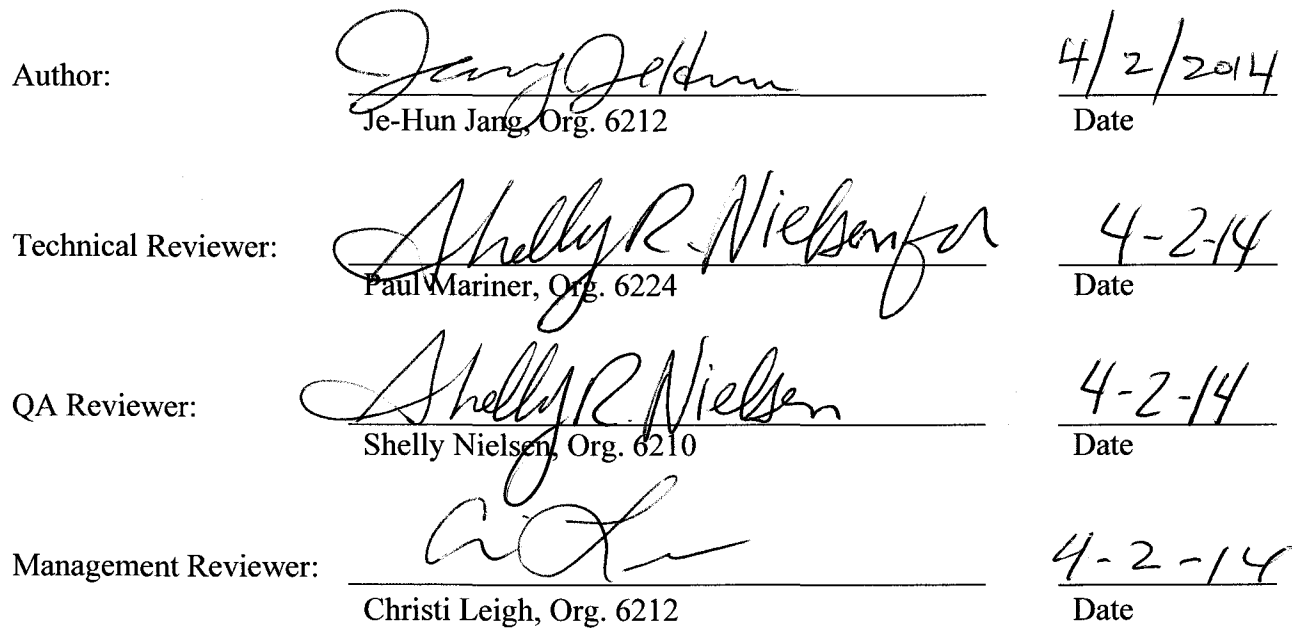 Author: Jang JeHun 4/2/2014
Je-Hun Jang, Org. 6212 Date
Technical Reviewer: Shelly R. Nielsen for 4-2-14
Paul Mariner, Org. 6224 Date
QA Reviewer: Shelly R. Nielsen 4-2-14
Shelly Nielsen, Org. 6210 Date
Management Reviewer: 4-2-14
Christi Leigh, Org. 6212 Date